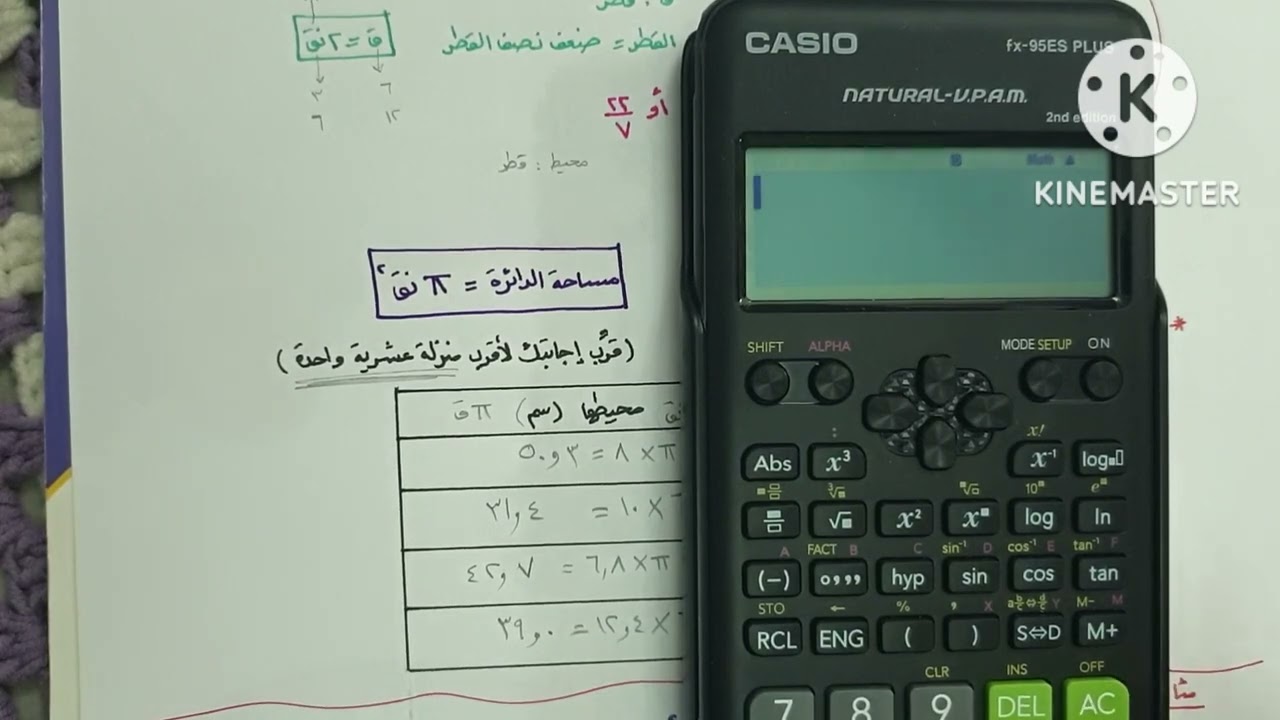 ق = ٢ نق
القطر = ضعف نصف القطر
٣ ٦
٦ ١٢
أو ٢٢/٧
محيط : قطر
مساحة الدائرة = π نق²
(قرّب إجابتك لأقرب منزلة عشرية واحدة)
نق محيطها (سم) π ق
π × ٨ = ٥٠,٣
× ١٠ = ٣١,٤
π × ٦,٨ = ٤٢,٧
× ١٢,٤ = ٣٩,٠
مثا
CASIO
fx-95ES PLUS
NATURAL-V.P.A.M.
2nd edition
Math ▲
K
KINEMASTER
SHIFT ALPHA MODE SETUP ON
: x!
Abs x³ x⁻¹ log
³√ 10 eⁿ
√ x² x log ln
A FACT B C sin⁻¹ D cos⁻¹ E tan⁻¹ F
(−) hyp sin cos tan
STO ← % , X Y M− M
RCL ENG ( ) S⇔D M+
CLR INS OFF
7 8 9 DEL AC